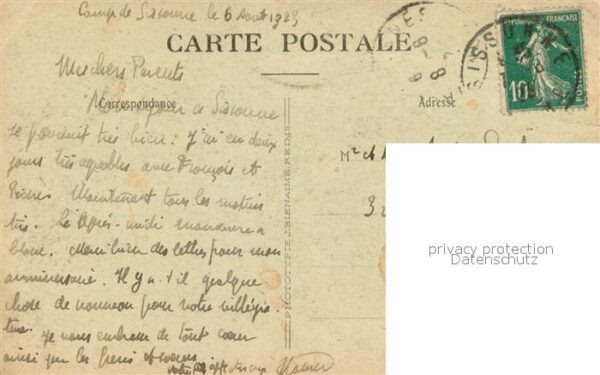 Camp de Sissonne le 6 Août 1923
CARTE POSTALE
Mes chers Parents
Correspondance
Adresse
Mon séjour à Sissonne
se poursuit très bien : J'ai eu deux
jours très agréables avec François et
Pierre. Maintenant tous les matins
tir. L'Après-midi manœuvre à
blanc. Merci bien des lettres pour mon
anniversaire. Il y a-t-il quelque
chose de nouveau pour votre villégia-
ture. Je vous embrasse de tout cœur
ainsi que les frères et sœurs
votre fils
PHOTOTYPIE J. BIENAIMÉ-REIMS
M² et
3
SISSONNE
POSTES
10
privacy protection
Datenschutz